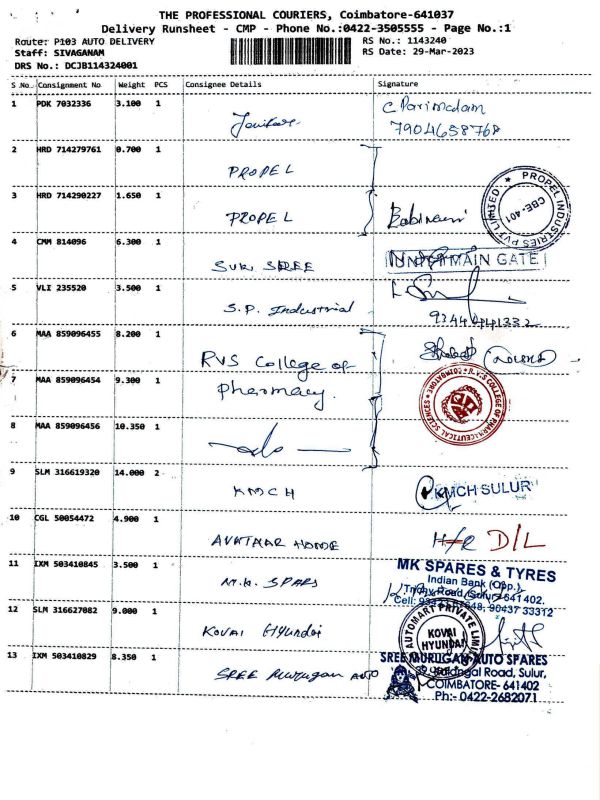 THE PROFESSIONAL COURIERS, Coimbatore-641037
Delivery Runsheet - CMP - Phone No.:0422-3505555 - Page No.:1
Route: P103 AUTO DELIVERY RS No.: 1143240
Staff: SIVAGANAM RS Date: 29-Mar-2023
DRS No.: DCJB114324001
S No. Consignment No Weight PCS Consignee Details Signature
1 PDK 7032336 3.100 1 C Parimadam
7904658768
2 HRD 714279761 0.700 1 PROPEL
3 HRD 714290227 1.650 1 PROPEL
PROPEL INDUSTRIES PVT LIMITED ★ CBE-401
4 CMM 814096 6.300 1 SURI SREE
MAIN GATE
5 VLI 235520 3.500 1 S.P. Industrial
6 MAA 859096455 8.200 1 RVS College of
7 MAA 859096454 9.300 1 pharmacy.
R.V.S COLLEGE OF PHARMACEUTICAL SCIENCES ★ COIMBATORE
8 MAA 859096456 10.350 1 —do—
9 SLM 316619320 14.000 2 KMCH KMCH SULUR
10 CGL 50054472 4.900 1 AVATAAR HOME H/R D/L
11 IXM 503410845 3.500 1 M.K. SPARS
MK SPARES & TYRES
Indian Bank (Opp.),
Trichy Road, Sulur-641 402.
90437 33312
12 SLM 316627082 9.000 1 KOVAI Hyundai
AUTOMART PRIVATE LIMI
KOVAI
HYUNDAI
13 IXM 503410829 8.350 1 SREE Murugan AUTO
SREE MURUGAN AUTO SPARES
Road, Sulur,
COIMBATORE- 641402
Ph:- 0422-2682071